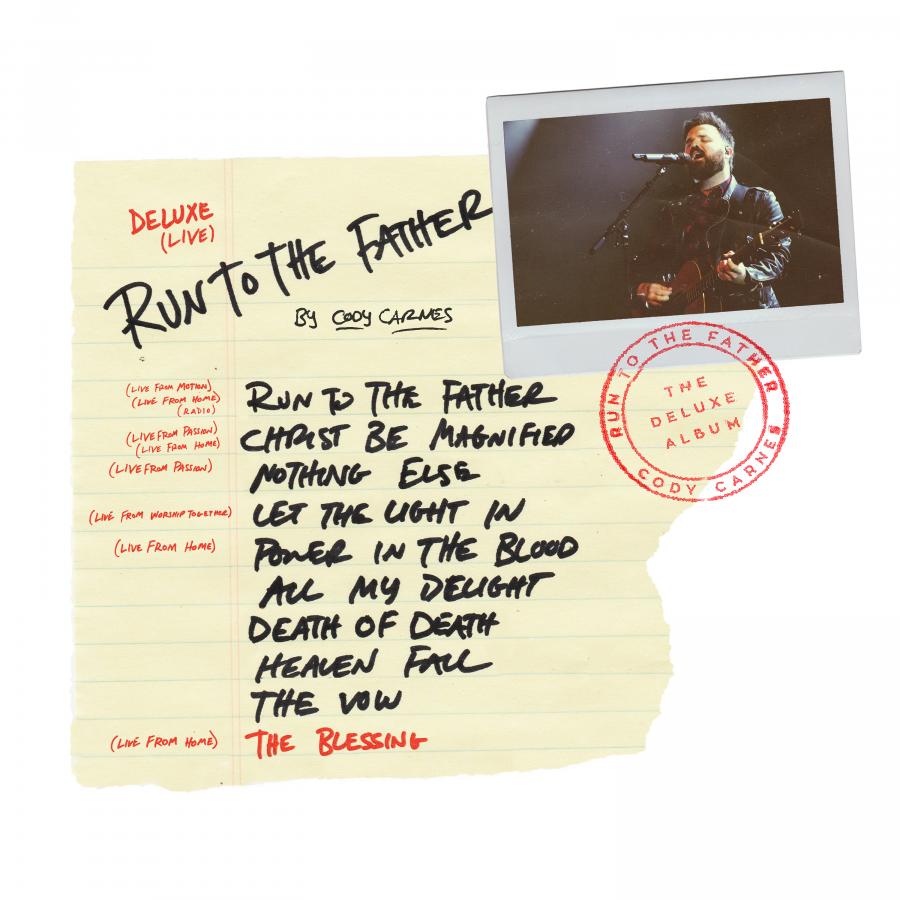 DELUXE
(LIVE)
RUN TO THE FATHER
BY CODY CARNES
(LIVE FROM MOTION)
(LIVE FROM HOME)
(RADIO)
RUN TO THE FATHER
(LIVE FROM PASSION)
(LIVE FROM HOME)
CHRIST BE MAGNIFIED
(LIVE FROM PASSION)
NOTHING ELSE
(LIVE FROM WORSHIP TOGETHER)
LET THE LIGHT IN
(LIVE FROM HOME)
POWER IN THE BLOOD
ALL MY DELIGHT
DEATH OF DEATH
HEAVEN FALL
THE VOW
(LIVE FROM HOME)
THE BLESSING
RUN TO THE FATHER
THE
DELUXE
ALBUM
CODY CARNES